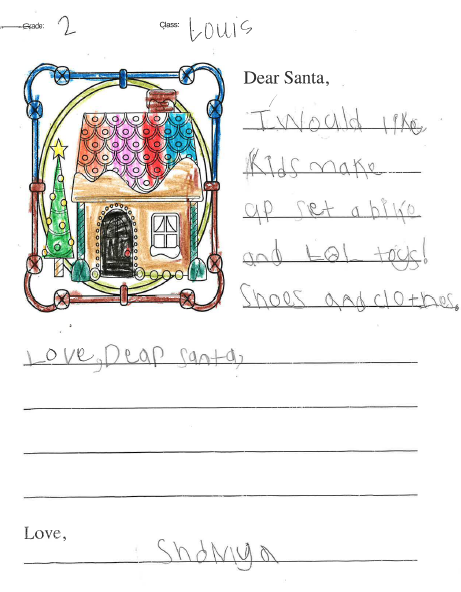 Grade: 2 Class: Louis
Dear Santa,
I Would like
Kids make
up set a bike
and LOL toys!
Shoes and clothes,
Love, Dear santa,
Love,
Shaniya